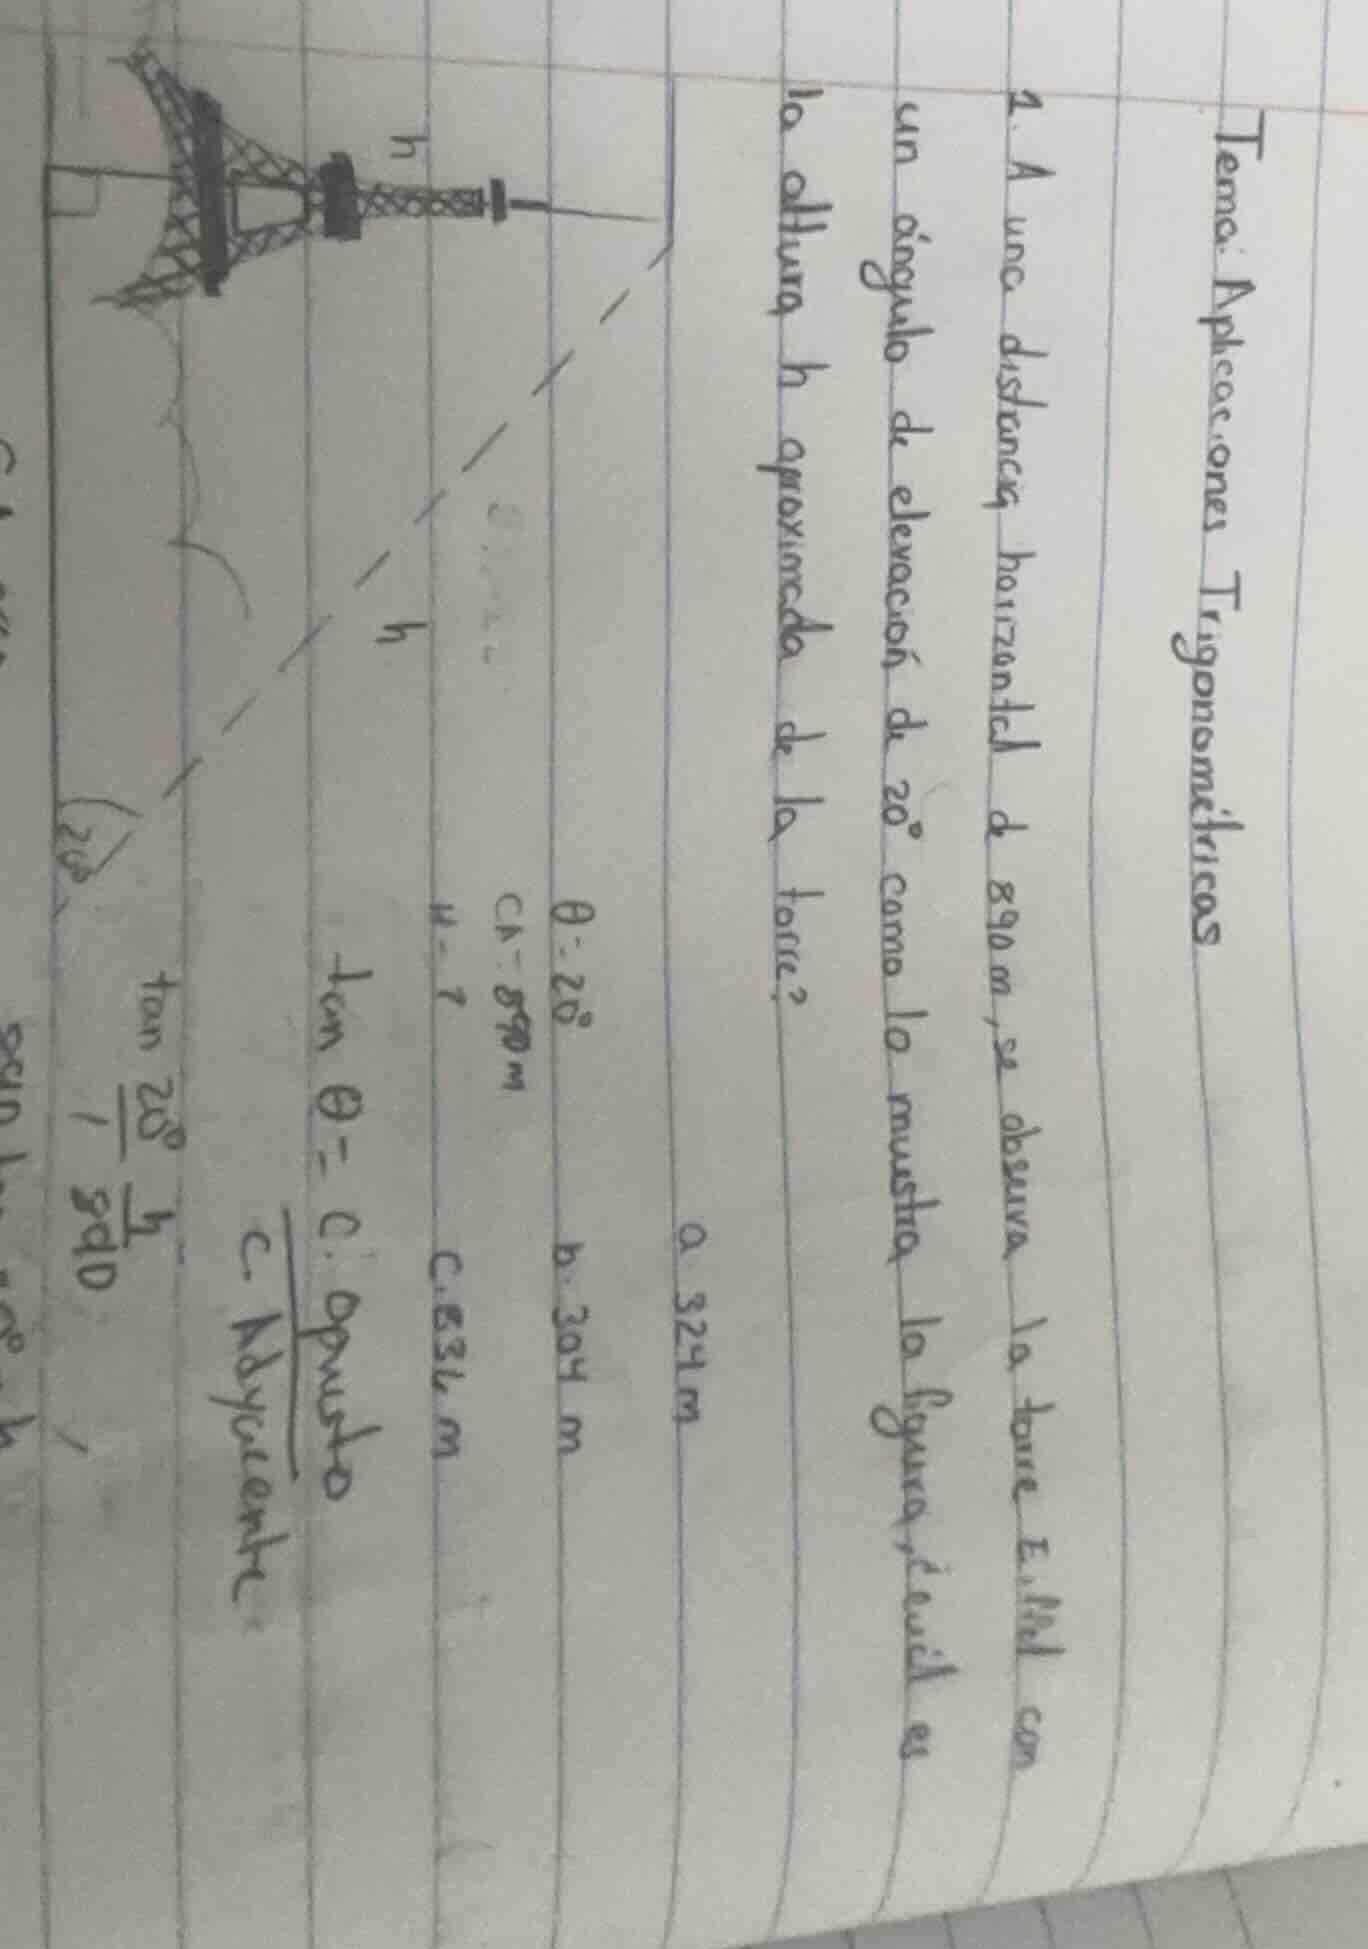 Tema: Aplicaciones Trigonométricas
1. A una distancia horizontal d 890 m, se observa la torre Eiffel con
un ángulo de elevación de 20° como lo muestra la figura, ¿cuál es
la altura h aproximada de la torre?
a. 324 m
θ = 20°
b. 304 m
CA = 890 m
H = ?
C. 836 m
h
h
tan θ = C. opuesto
C. Adyacente
20°
tan 20° h
1 890